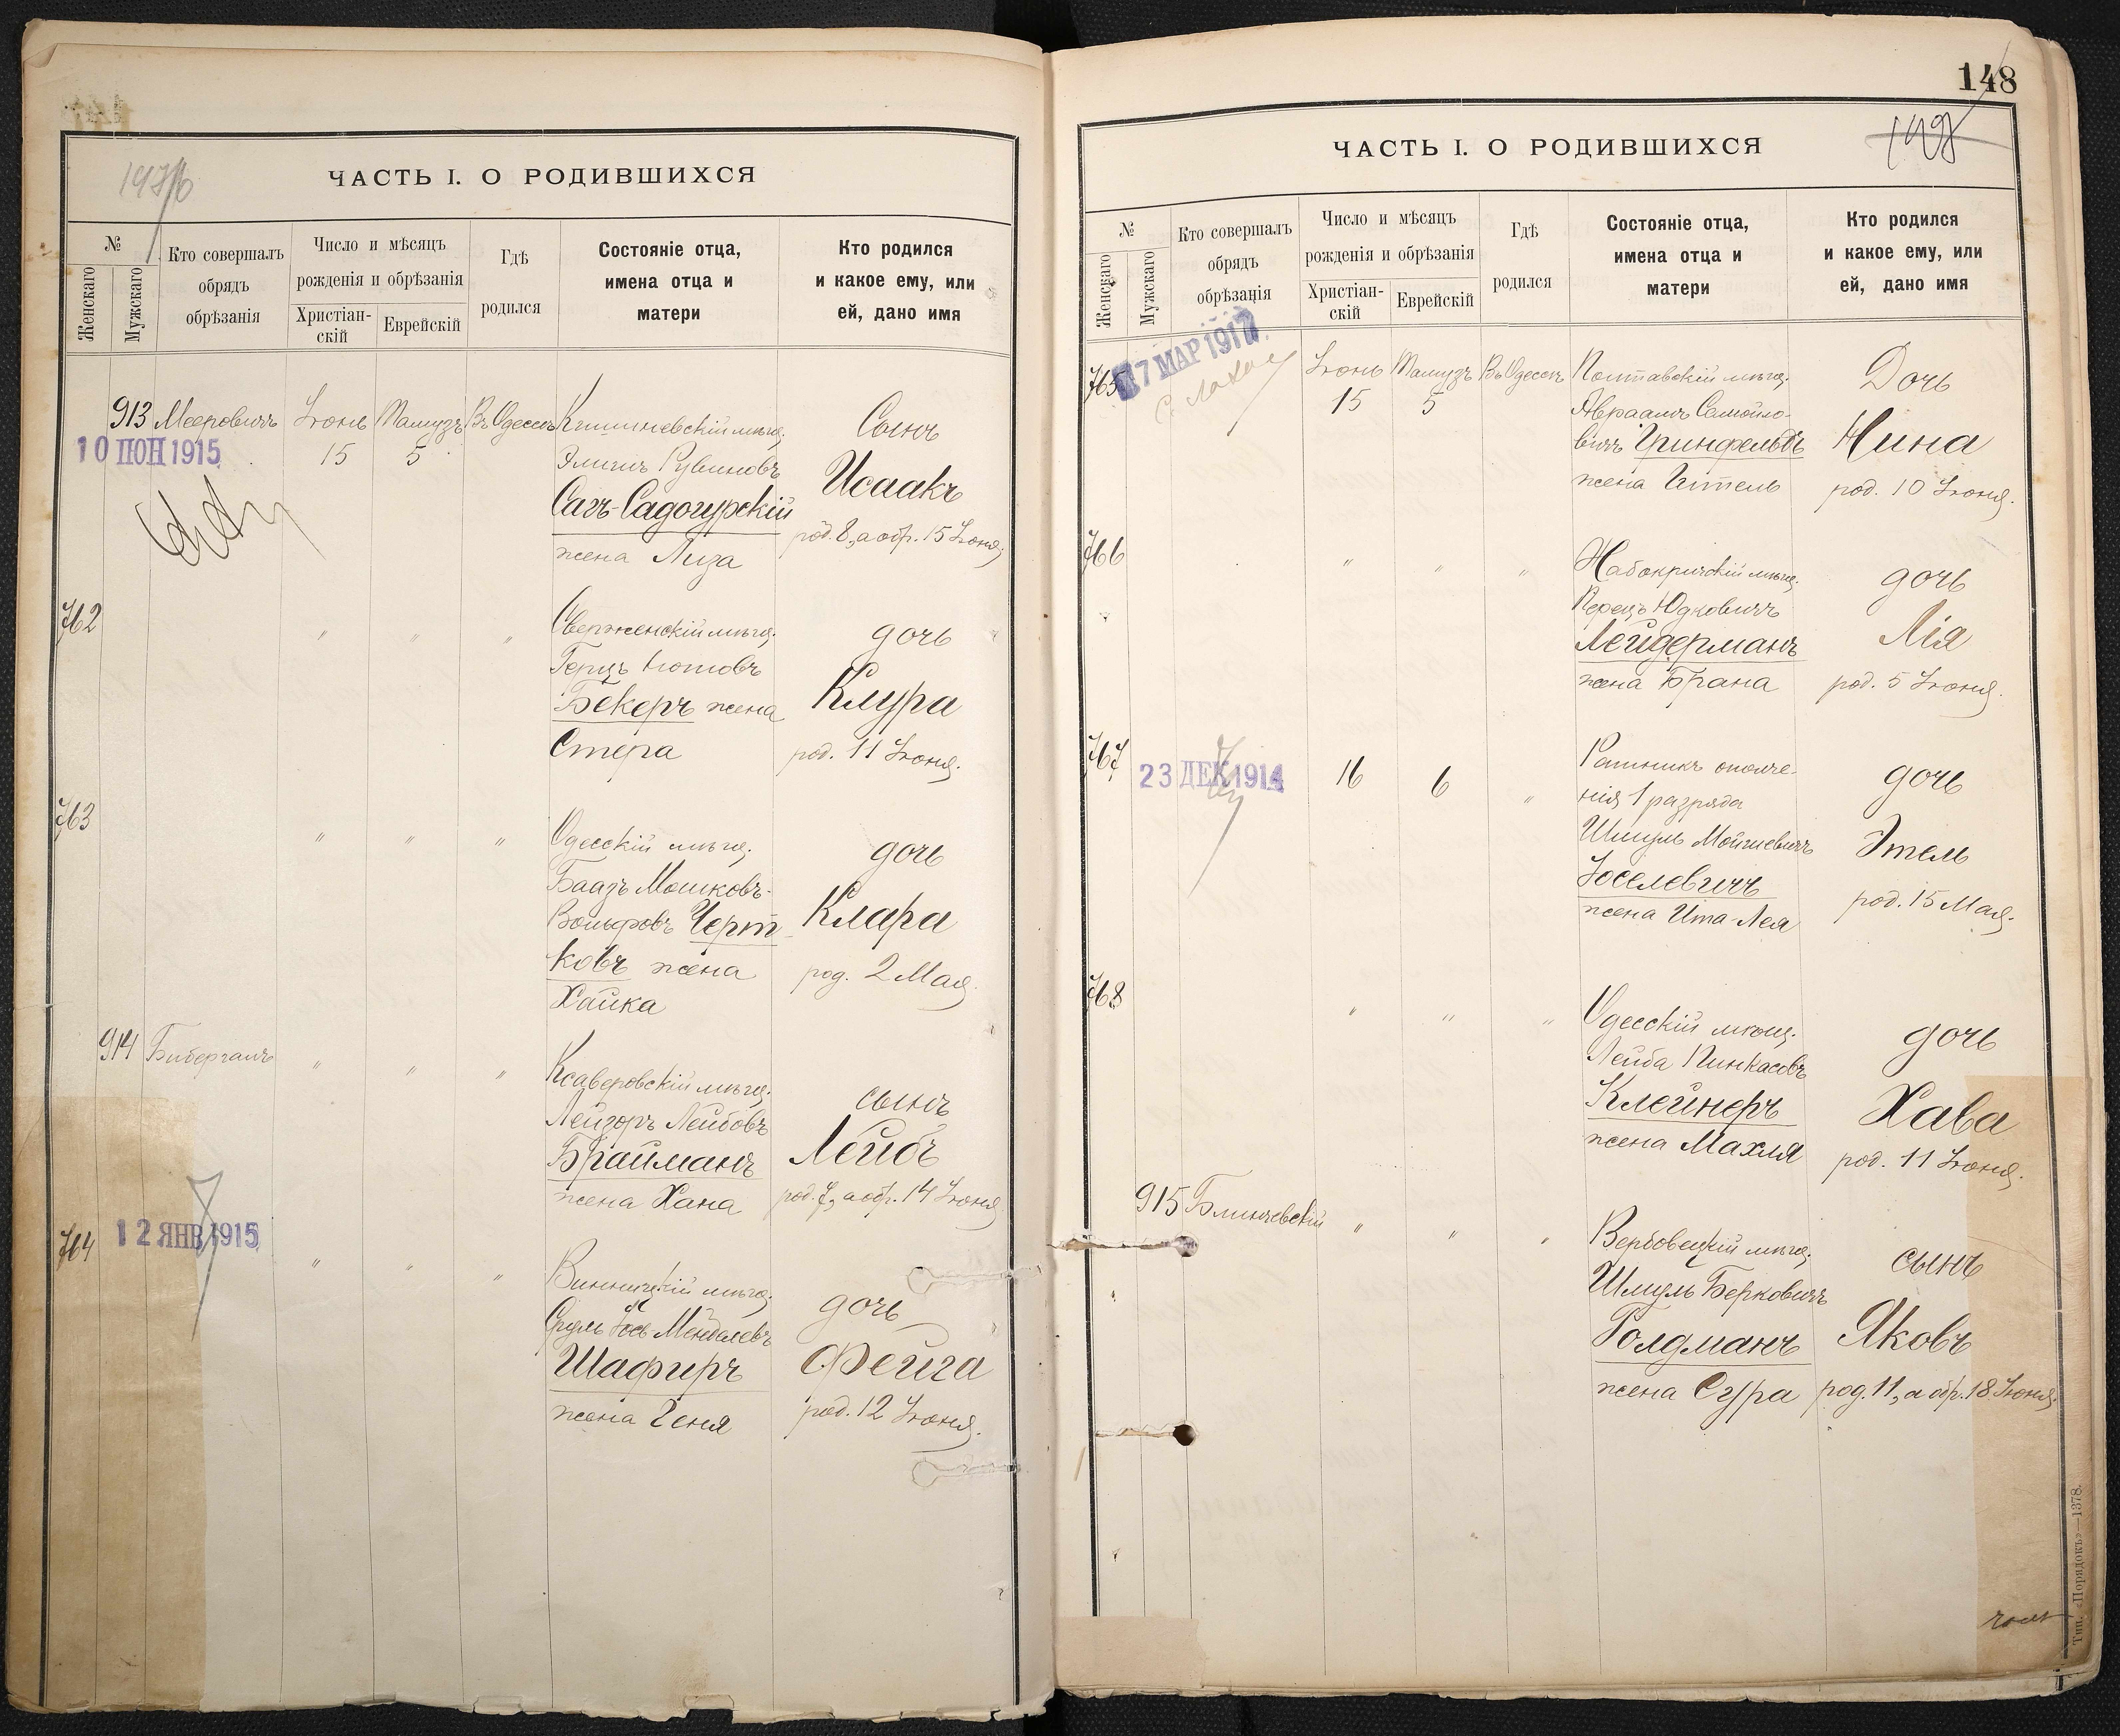 147/б
ЧАСТЬ I. О РОДИВШИХСЯ
№
Женскаго
Мужскаго
Кто совершалъ
обрядъ
обрѣзанія
Число и мѣсяцъ
рожденія и обрѣзанія
Христіан-
скій
Еврейскій
Гдѣ
родился
Состояніе отца,
имена отца и
матери
Кто родился
и какое ему, или
ей, дано имя
913 Мееровичъ Іюнь Тамузъ Въ Одессѣ Кишиневскій мѣщ.
15 5
10 ІЮН 1915
Рувиновъ
Сагъ-Садогурскій
жена Лиза
Сынъ
Исаакъ
род. 8, а обр. 15 Іюня;
762 " " " Сверженскій мѣщ.
Герцъ Нотовъ
Бекеръ жена
Стера
дочь
Клура
род. 11 Іюня.
763 " " " Одесскій мѣщ.
Баазъ Мошковъ-
Вольфовъ Черт-
ковъ жена
Хайка
дочь
Клара
род. 2 Мая.
914 Бибергалъ " " " Ксаверовскій мѣщ.
Лейзоръ Лейбовъ
Брайманъ
жена Хана
сынъ
Лейбъ
род. 7, а обр. 14 Іюня
764 12 ЯНВ 1915 " " " Винницкій мѣщ.
Сруль Іось Менделевъ
Шафиръ
жена Геня
дочь
Фейга
род. 12 Іюня.
148
148
ЧАСТЬ I. О РОДИВШИХСЯ
№
Женскаго
Мужскаго
Кто совершалъ
обрядъ
обрѣзанія
Число и мѣсяцъ
рожденія и обрѣзанія
Христіан-
скій
Еврейскій
Гдѣ
родился
Состояніе отца,
имена отца и
матери
Кто родился
и какое ему, или
ей, дано имя
765 7 МАР 1917 Іюнь Тамузъ Въ Одессѣ Полтавскій мѣщ.
15 5
Авраамъ Самойло-
вичъ Гринфельдъ
жена Гитель
Дочь
Нина
род. 10 Іюня.
766 " " " Жабокричскій мѣщ.
Перецъ Юдковичъ
Лейдерманъ
жена Брана
дочь
Лія
род. 5 Іюня.
767 23 ДЕК 1914 16 6 " Ратникъ ополче-
нія 1 разряда
Шмуль Мойшевичъ
Іоселевичъ
жена Ита-Лея
дочь
Этель
род. 15 Мая.
768 " " " Одесскій мѣщ.
Лейба Пинкасовъ
Клейнеръ
жена Махля
дочь
Хава
род. 11 Іюня.
915 Блинчевскій " " " Вербовецкій мѣщ.
Шмуль Берковичъ
Голдманъ
жена Сура
сынъ
Яковъ
род. 11, а обр. 18 Іюня.
Тип. «Порядокъ»—1378.